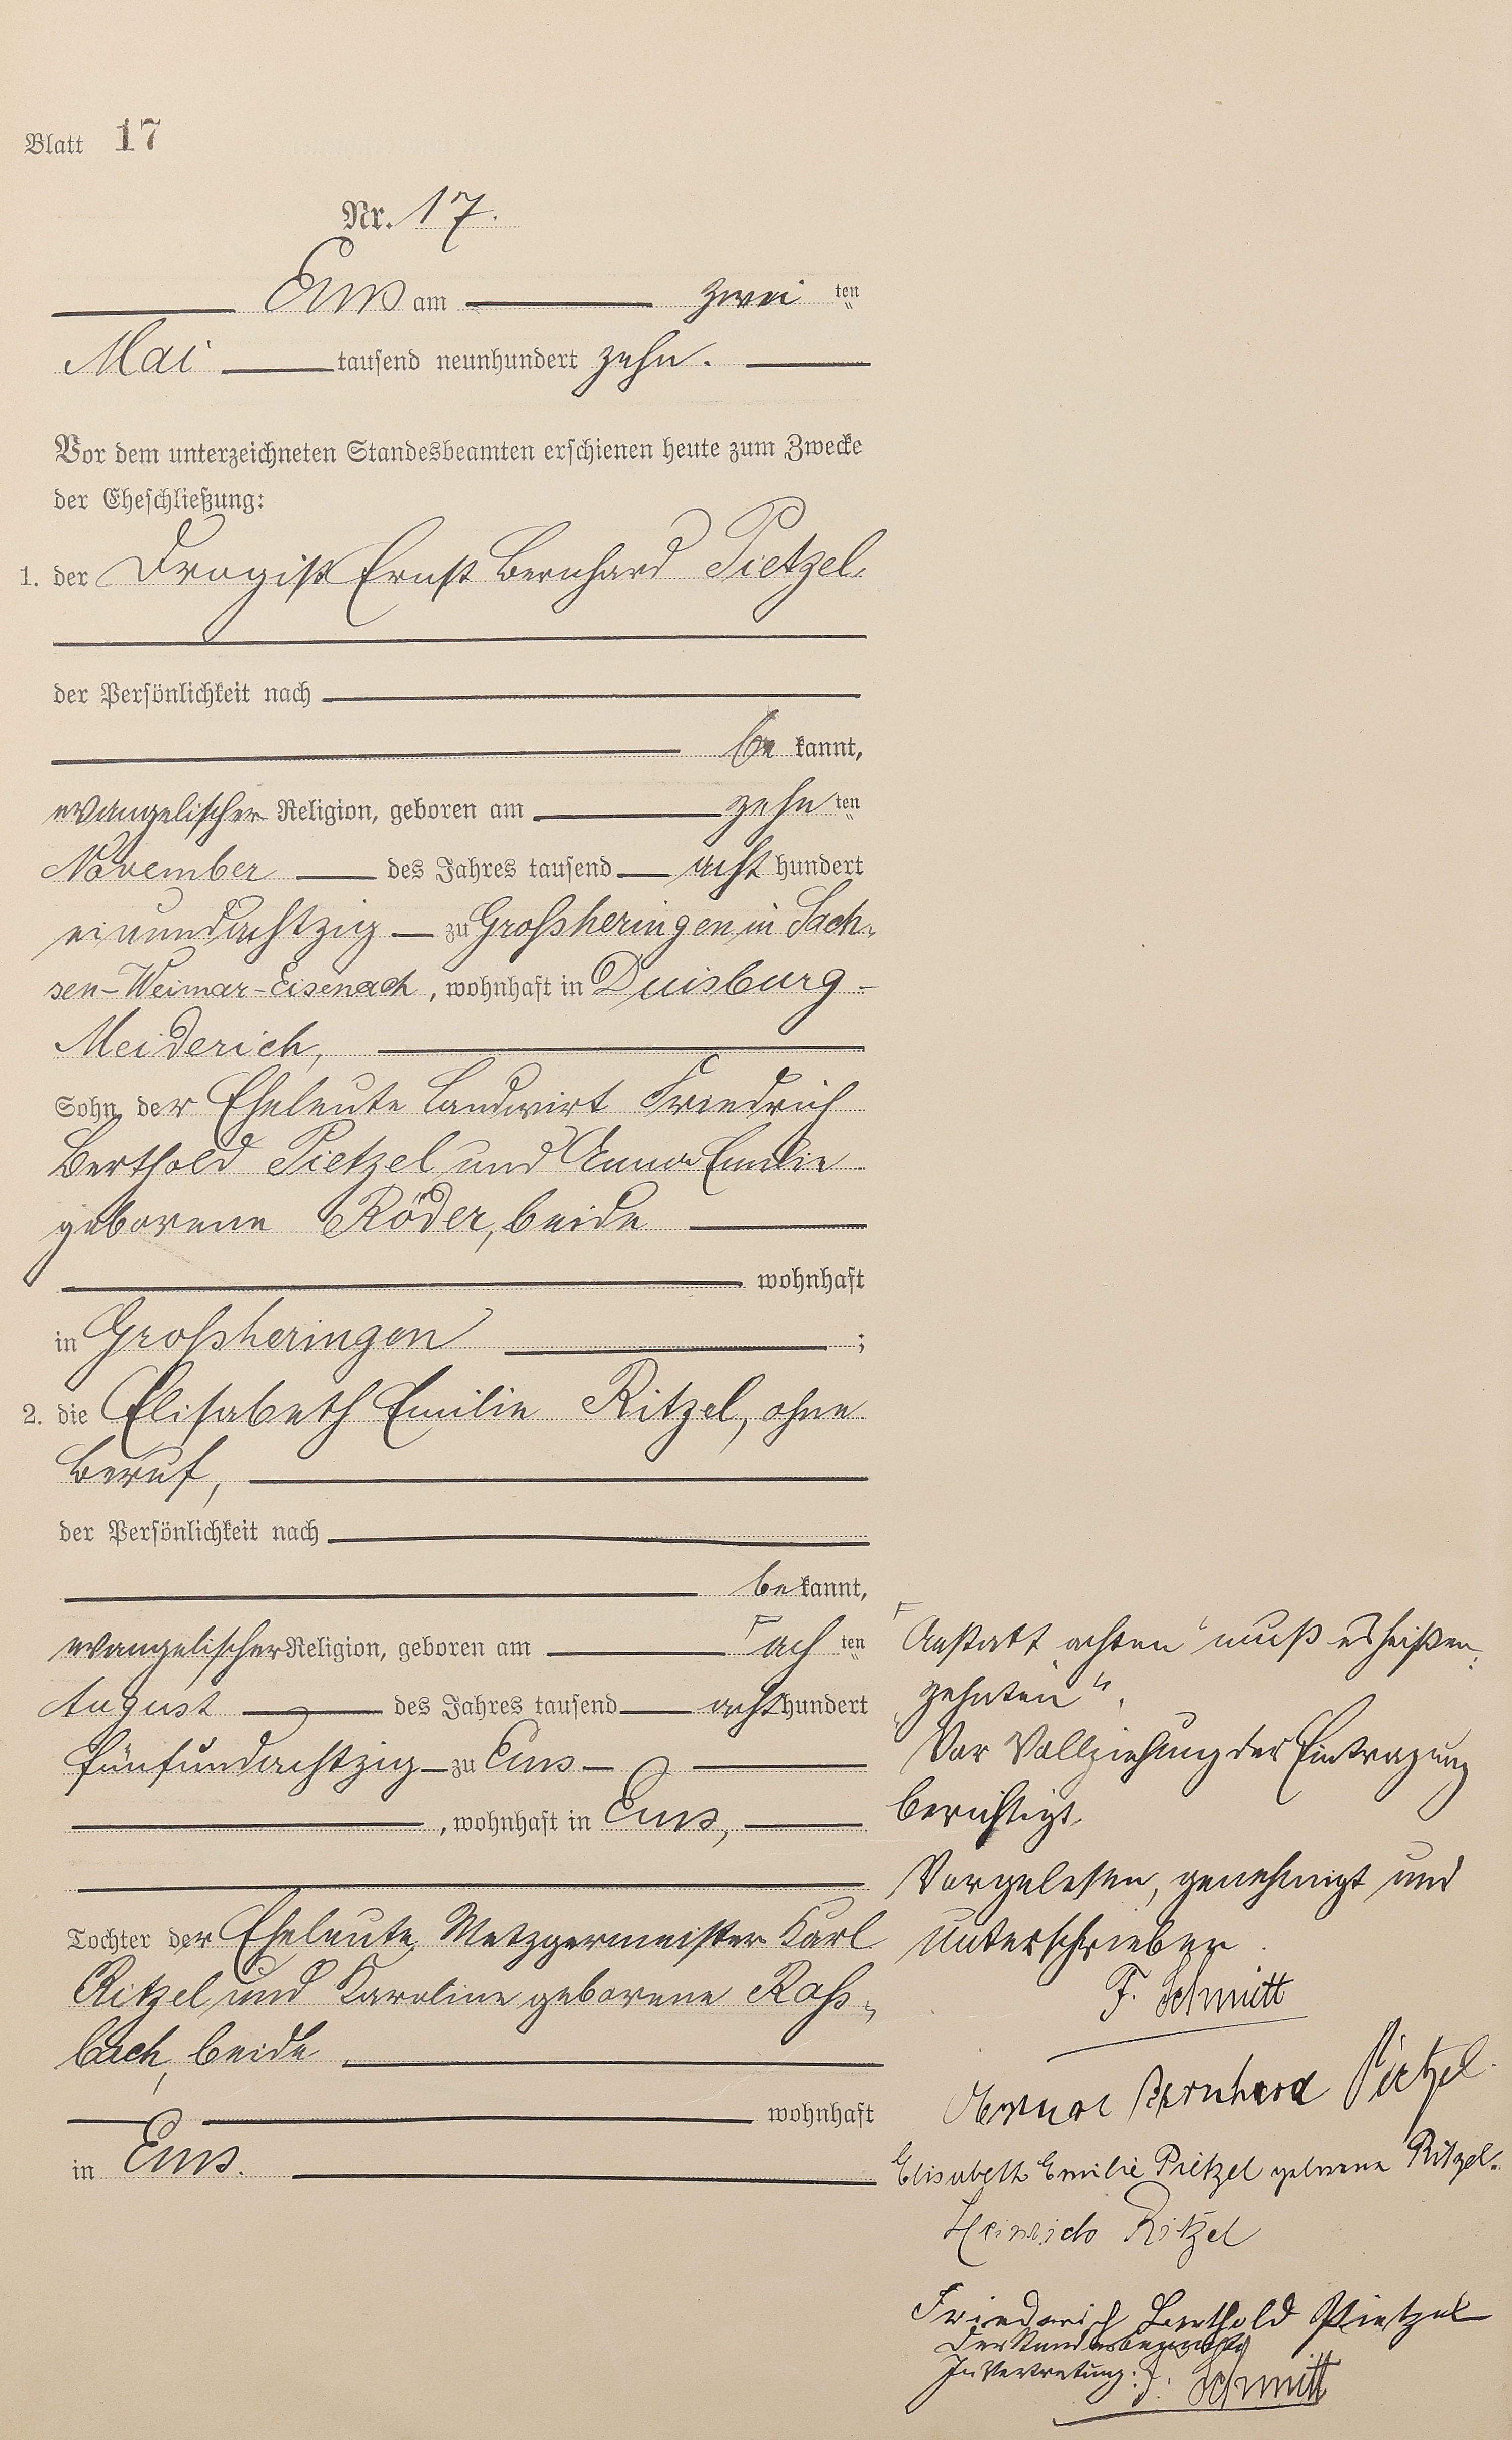 Blatt 17
Nr. 17.
Ems am zwei ten
Mai tausend neunhundert zehn.
Vor dem unterzeichneten Standesbeamten erschienen heute zum Zwecke
der Eheschließung:
1. der Drogist Ernst Bernhard Pietzel,
der Persönlichkeit nach
be kannt,
evangelischer Religion, geboren am zehn ten
November des Jahres tausend acht hundert
einundachtzig zu Großheringen in Sach-
sen-Weimar-Eisenach, wohnhaft in Duisburg-
Meiderich,
Sohn der Eheleute Landwirt Friedrich
Berthold Pietzel und Anna Emilie
geborene Röder, beide
wohnhaft
in Großheringen ;
2. die Elisabeth Emilie Ritzel, ohne
Beruf,
der Persönlichkeit nach
be kannt,
evangelischer Religion, geboren am ⌈ ach ten
August des Jahres tausend acht hundert
fünfundachtzig zu Ems
, wohnhaft in Ems,
Tochter der Eheleute Metzgermeister Karl
Ritzel und Karoline geborene Roß-
bach, beide
wohnhaft
in Ems.
⌈ Anstatt „achten“ muß es heißen:
„zehnten“.
Vor Vollziehung der Eintragung
berichtigt.
Vorgelesen, genehmigt und
unterschrieben
F. Schmitt
Bernhard Pietzel
Elisabeth Emilie Pietzel geborene Ritzel.
Heinrich Ritzel
Friedrich Berthold Pietzel
Der Standesbeamte
In Vertretung: F. Schmitt